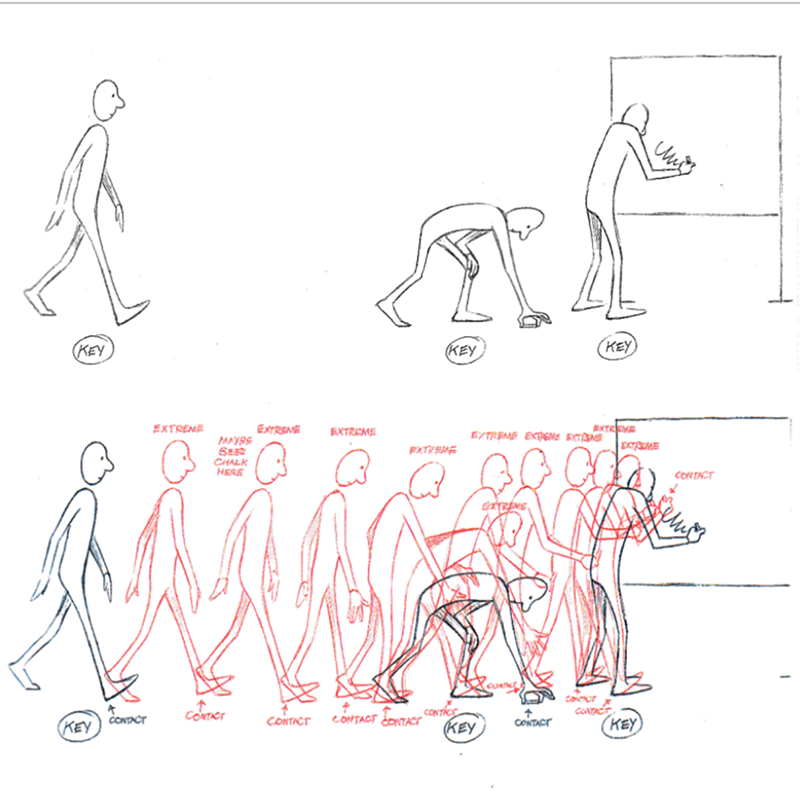 KEY
KEY
KEY
EXTREME
MAYBE
SEES
CHALK
HERE
EXTREME
EXTREME
EXTREME
EXTREME
EXTREME
EXTREME
EXTREME
EXTREME
EXTREME
CONTACT
CONTACT
KEY
CONTACT
CONTACT
CONTACT
CONTACT
CONTACT
CONTACT
KEY
CONTACT
CONTACT
CONTACT
KEY